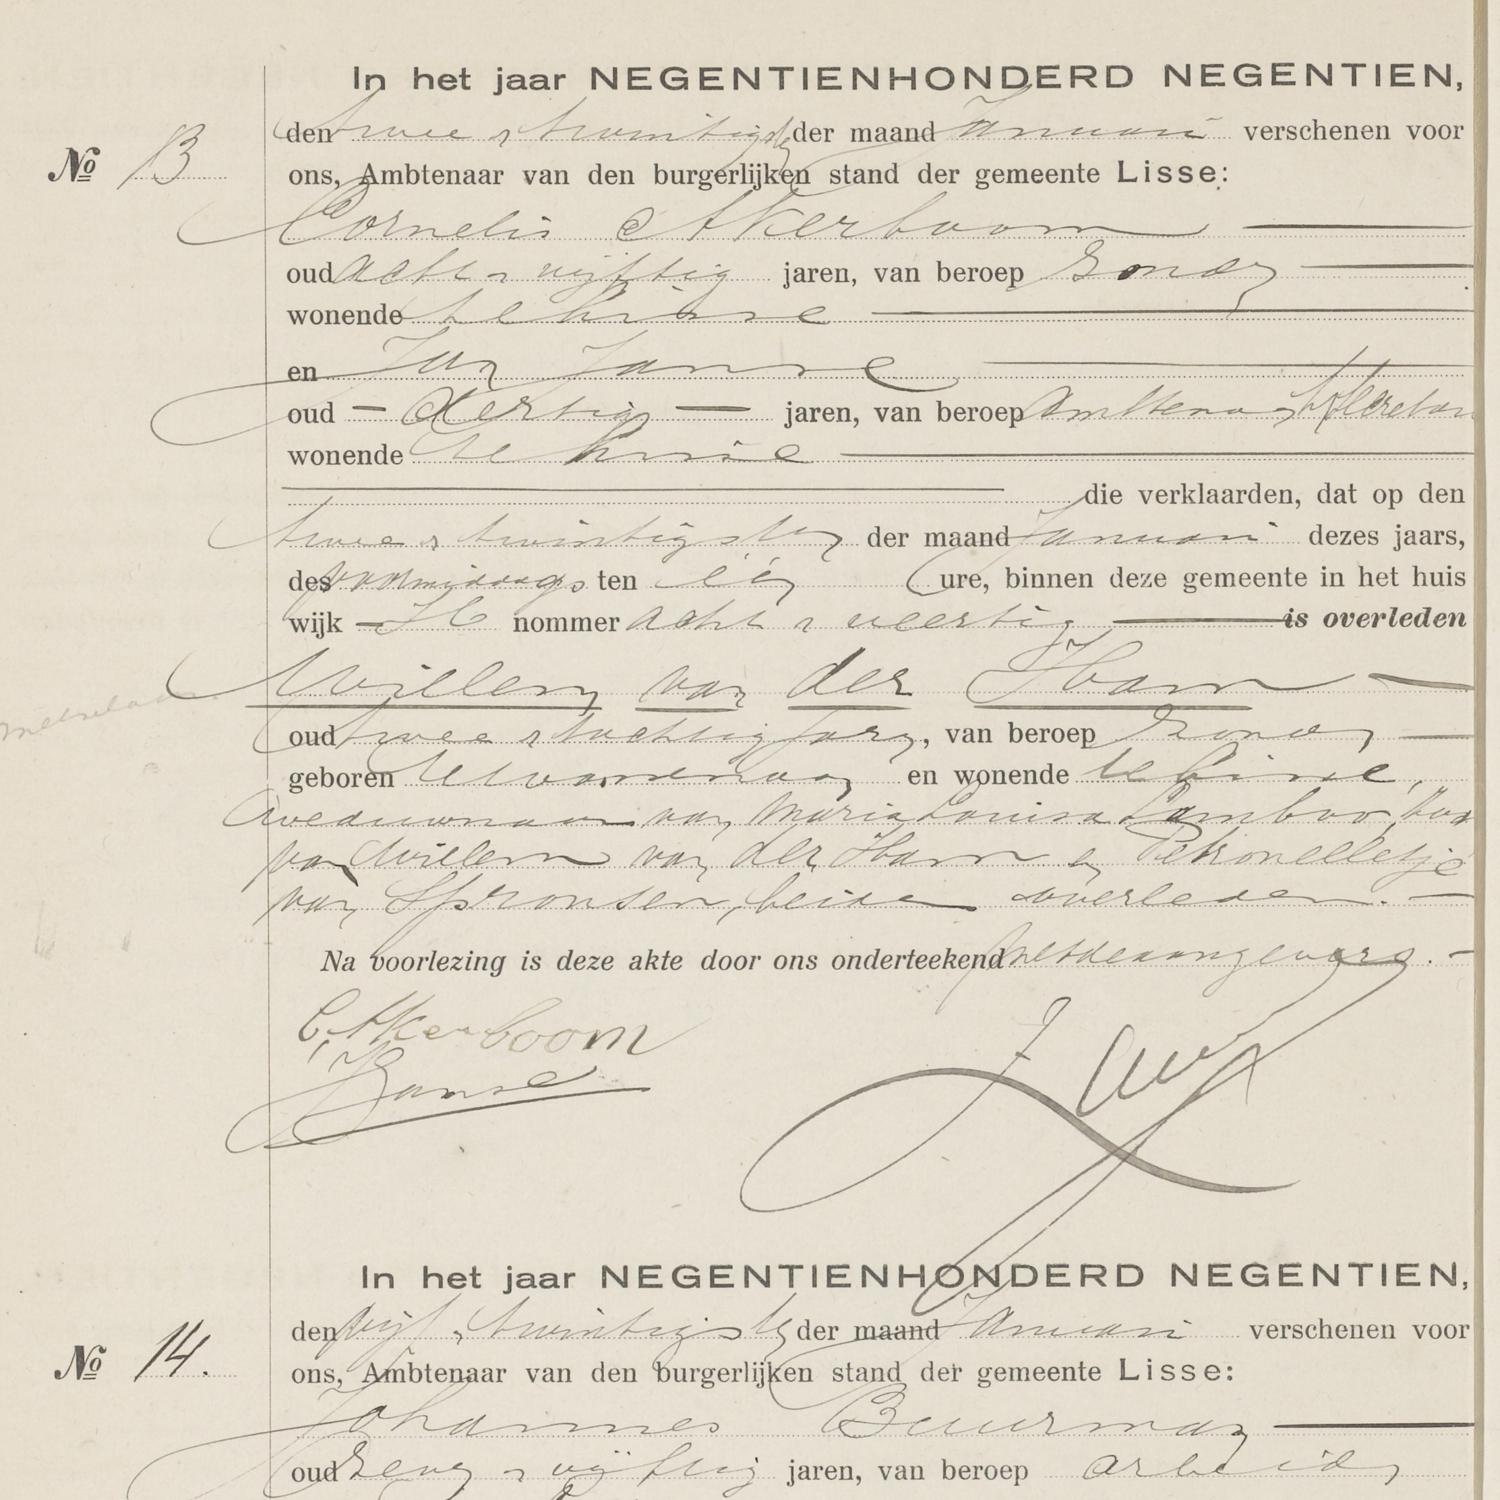 In het jaar NEGENTIENHONDERD NEGENTIEN,
den twee & twintigsten der maand Januari verschenen voor
No 13
ons, Ambtenaar van den burgerlijken stand der gemeente Lisse:
Cornelis Akerboom
oud acht & vijftig jaren, van beroep zonder
wonende te Lisse
en Jan Janse
oud - dertig - jaren, van beroep
wonende te Lisse
die verklaarden, dat op den
twee & twintigsten der maand Januari dezes jaars,
des voormiddags ten één ure, binnen deze gemeente in het huis
wijk - H nommer acht & veertig is overleden
Willem van der Ham
oud twee & tachtig jaren, van beroep zonder
geboren te Wassenaar en wonende te Lisse,
weduwnaar van Maria Louisa Lamboo, zoon
van Willem van der Ham en Petronelletje
van Spronsen, beiden overleden.
Na voorlezing is deze akte door ons onderteekend met de aangevers.
C. Akerboom
J Janse
In het jaar NEGENTIENHONDERD NEGENTIEN,
den vijf & twintigsten der maand Januari verschenen voor
No 14.
ons, Ambtenaar van den burgerlijken stand der gemeente Lisse:
Johannes Buurman
oud zeven & vijftig jaren, van beroep arbeider